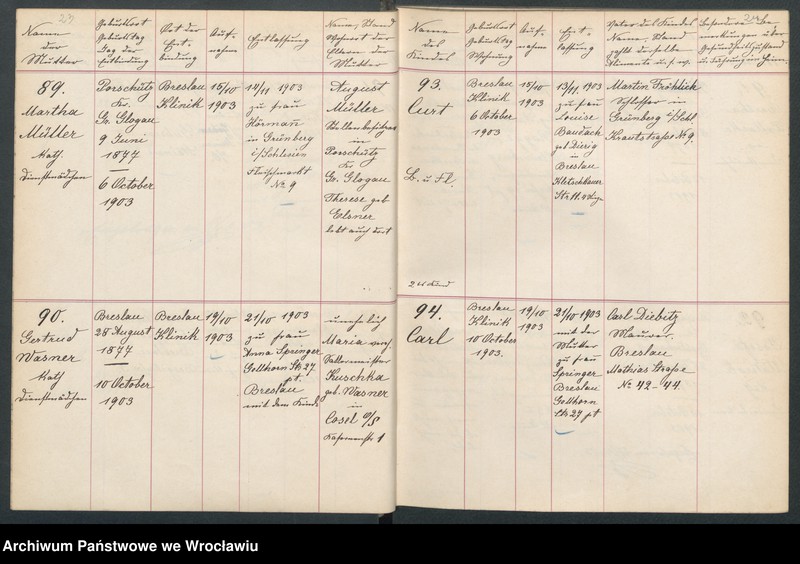 Name
der
Mutter
Geburtsort
Geburtstag
Tag der
Entbindung
Ort der
Ent-
bindung
Auf-
nahme
Entlassung
Name, Stand
Wohnort der
Eltern der
Mutter
89.
Martha
Müller
kath.
Dienstmädchen
Porschütz
Kr.
Gr. Glogau
9 Juni
1877
6 October
1903
Breslau
Klinik
15/10
1903
1903
zu Frau
Hörmañ
in Grünberg
i/Schlesien
Fleischmarkt
No 9
August
Müller
in
Porschütz
Kr
Gr. Glogau
Therese geb
Elsner
lebt auch dort
90.
Gertrud
Wasner
kath
Dienstmädchen
Breslau
28 August
1877
10 October
1903
Breslau
Klinik
19/10
1903
21/10 1903
zu Frau
Anna Springer
Gellhorn Str 27.
pt.
Breslau
mit dem Kinde
unehelich
Maria
Kuschka
geb. Wasner
in
Cosel O/S
1
Name
des
Kindes
Geburtsort
Geburtstag
Wohnung
Auf-
nahme
Ent-
lassung
Vater des Kindes
Name, Stand
zahlt derselbe
Alimente u.s.w.
Besondere Be-
merkungen über
Gesundheitszustand
u. Führung im Heim.
93.
Curt
B. u. Fl.
Breslau
Klinik
6 October
1903
15/10
1903
13/11 1903
zu Frau
Louise
Baudach
geb Dierig
in
Breslau
Kletschkauer
Str. 11.
Martin Fröhlich
Schlosser in
Grünberg i/Schl.
Krautstraße No 9.
94.
Carl
Breslau
Klinik
10 October
1903.
19/10
1903
21/10 1903
mit der
Mutter
zu Frau
Springer
Breslau
Gellhorn
Str 27 pt
Carl Diebitz
Maurer.
Breslau
Mathias Straße
No 42-44
Archiwum Państwowe we Wrocławiu